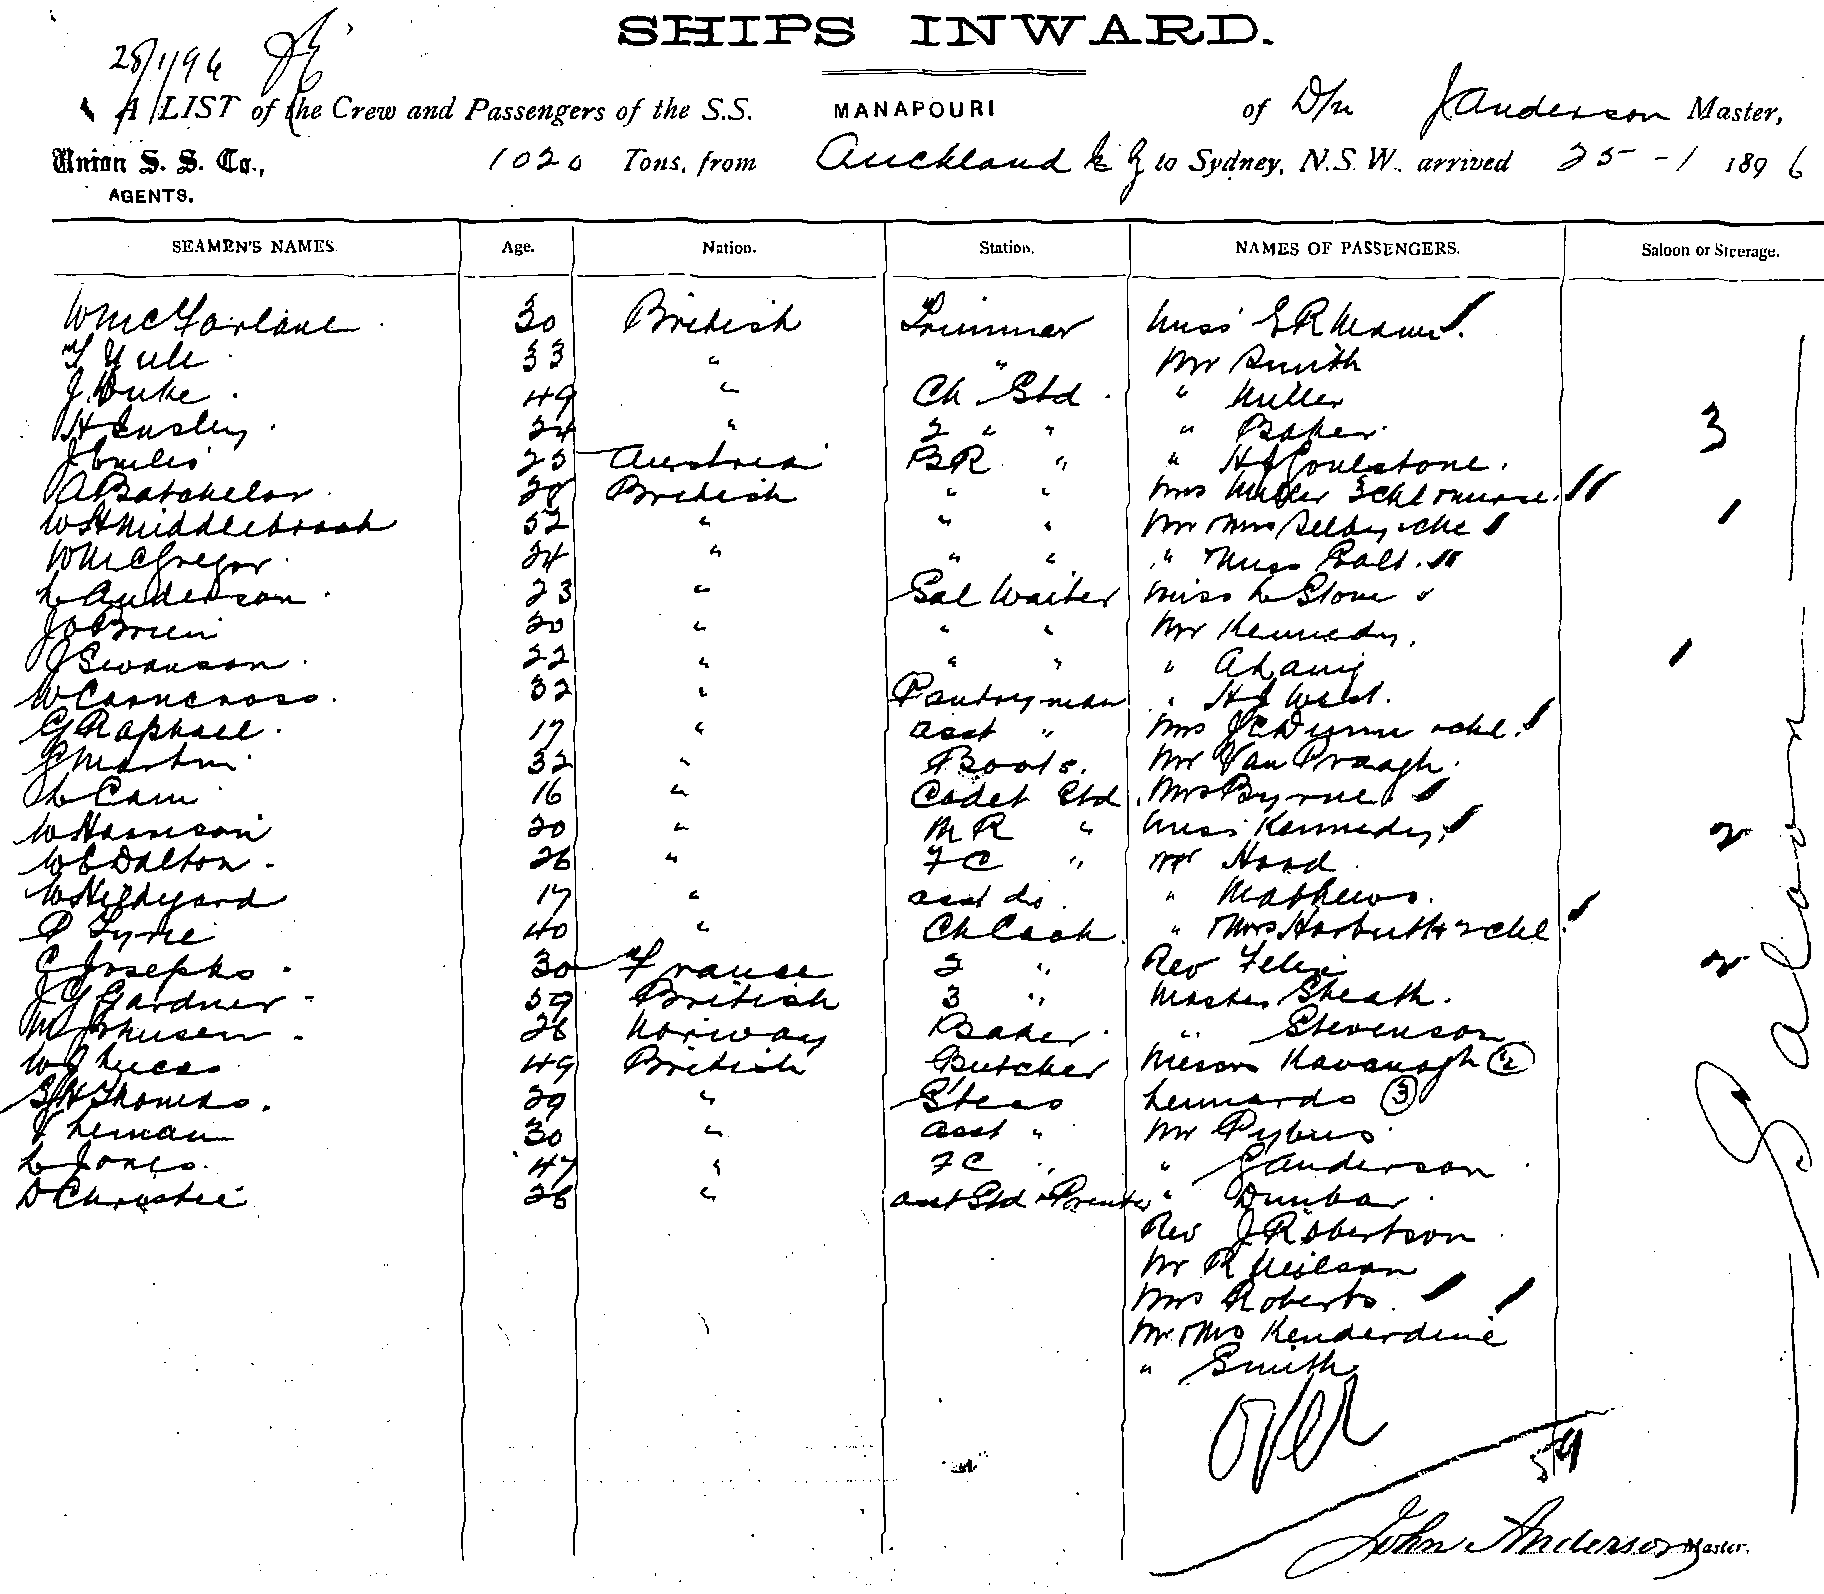 SHIPS INWARD.
28/1/96
A LIST of the Crew and Passengers of the S.S. MANAPOURI of D/n J Anderson Master,
Union S. S. Co., AGENTS. 1020 Tons, from Auckland to Sydney, N.S.W. arrived 25-1 1896
SEAMEN'S NAMES. Age. Nation. Station. NAMES OF PASSENGERS. Saloon or Steerage.
W McFarlane 30 British Trimmer Miss E R
T Yule 33 " " Mr Smith
J Duke 49 " Ch Std " Miller
H Ensley 24 " 2 " " " Baker 3
J 25 Austria BR " " H J Goulstone
A Batchelor 28 British " " Mrs Miller 3 chl & nurse
W H Middlebrook 52 " " " Mr & Mrs Selby & chl
W McGregor 24 " " " " & Miss Balt
L Anderson 23 " Sal Waiter Miss L Stone
J O'Brien 20 " " " Mr Kennedy
J Swanson 22 " " " " A
W Carncross 32 " Pantryman " H J West
G Raphael 17 " asst " Mrs J C Dunn & chl
G Martin 32 " Boots Mr Van Praagh
L Cam 16 " Cadet Std Mrs Byrne
W Harrison 20 " M R " Miss Kennedy 2
W C Dalton 26 " F C " Mr Hood
W Hildyard 17 " asst do " Mathews
P Fyrie 40 " Ch Cook " & Mrs Harbutt & 2 chl
C Josephs 30 France 2 " Rev Felix 2
J G Gardner 59 British 3 " Master Sheath
M Johnsen 26 Norway Baker " Stevenson
W J Lucas 49 British Butcher Messrs Kavanagh (2)
S H Thomas 29 " Stess Lennards (3)
T Leman 30 " asst " Mr Pybus
L Jones 47 " F C " " G Anderson
D Christie 26 " asst Std & Printer " Dunbar
Rev J Robertson
Mr R Neilson
Mrs Roberts
Mr & Mrs Kenderdine
" Smith
Saloon
over
54
John Anderson Master.